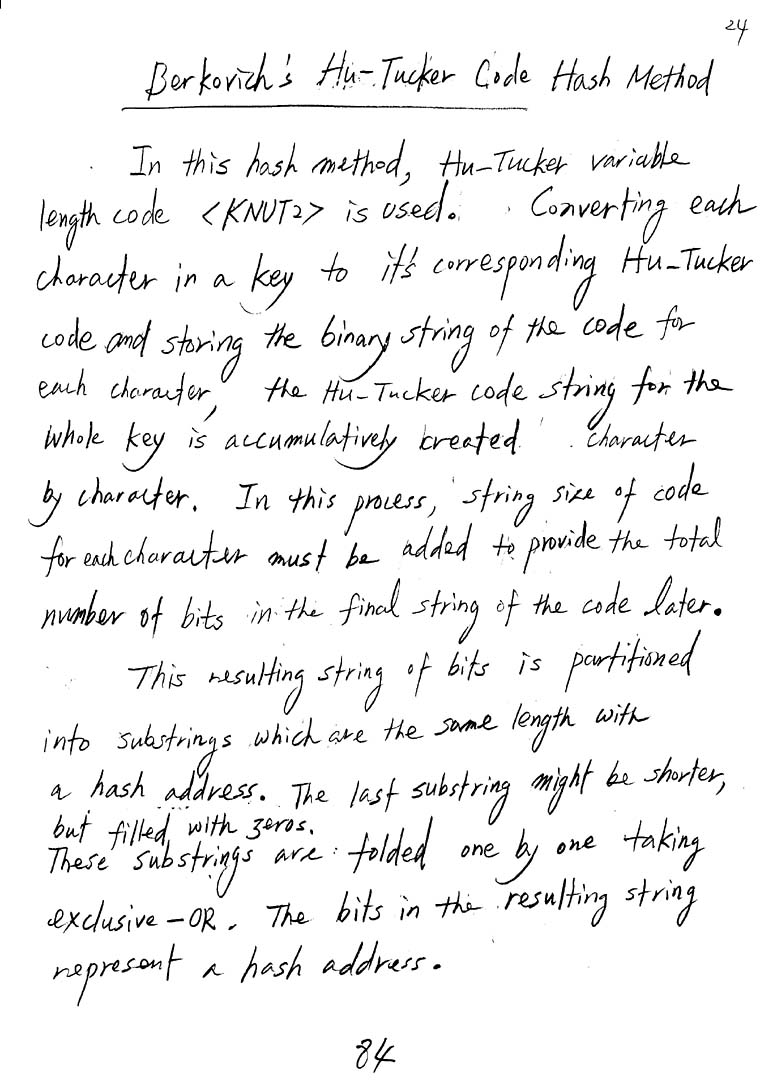 24
Berkovich's Hu-Tucker Code Hash Method
In this hash method, Hu-Tucker variable
length code <KNUT2> is used. Converting each
character in a key to it's corresponding Hu-Tucker
code and storing the binary string of the code for
each character, the Hu-Tucker code string for the
whole key is accumulatively created character
by character. In this process, string size of code
for each character must be added to provide the total
number of bits in the final string of the code later.
This resulting string of bits is partitioned
into substrings which are the same length with
a hash address. The last substring might be shorter,
but filled with zeros.
These substrings are folded one by one taking
exclusive-OR. The bits in the resulting string
represent a hash address.
84